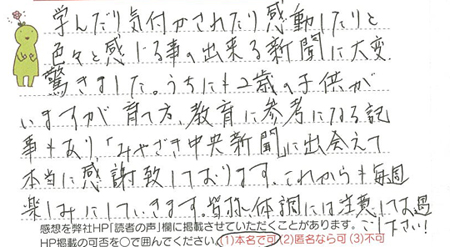 学んだり気付かされたり感動したりと
色々と感じる事の出来る新聞に大変
驚きました。うちにも2歳の子供が
いますが育て方、教育に参考になる記
事もあり、「みやざき中央新聞」に出会えて
本当に感謝致しております。これからも毎週
楽しみにしていきます。皆様、体調には注意してお過
ごし下さい!
感想を弊社HP「読者の声」欄に掲載させていただくことがあります。
HP掲載の可否を○で囲んでください。(1)本名で可 (2)匿名なら可 (3)不可